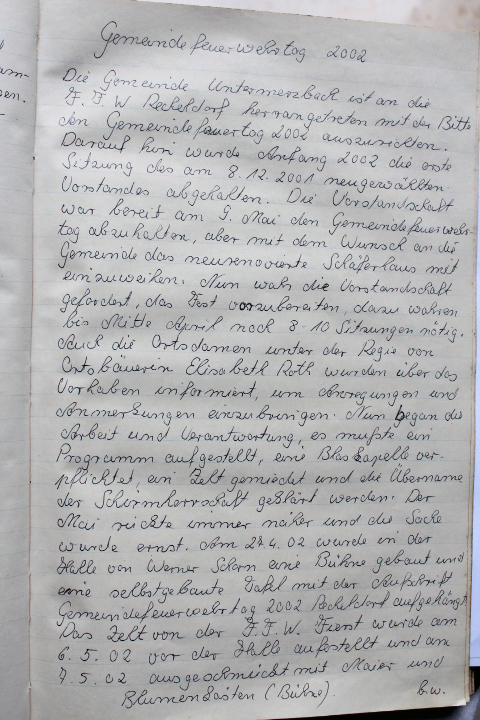 am-
sen.
Gemeindefeuerwehrtag 2002
Die Gemeinde Untermerzbach ist an die
F.F.W Recheldorf herrangetreten mit der Bitte
den Gemeindefeuertag 2002 auszurichten.
Darauf hin wurde Anfang 2002 die erste
Sitzung des am 8.12.2001 neugewällten
Vorstandes abgehalten. Die Vorstandschaft
war bereit am 9. Mai den Gemeindefeuerwehr-
tag abzuhalten, aber mit dem Wunsch an die
Gemeinde das neurenovierte Schäferhaus mit
einzuweihen. Nun wahr die Vorstandschaft
gefordert, das Fest vorzubereiten, dazu wahren
bis Mitte April noch 8-10 Sitzungen nötig.
Auch die Ortsdamen unter der Regie von
Ortsbäuerin Elisabeth Roth wurden über das
Vorhaben informiert, um Anregungen und
Anmerkungen einzubringen. Nun began die
Arbeit und Verantwortung, es mußte ein
Programm aufgestellt, eine Blaskapelle ver-
pflichtet, ein Zelt gemietet und die Übername
der Schirmherrschaft geklärt werden. Der
Mai rückte immer näher und die Sache
wurde ernst. Am 27.4.02 wurde in der
Halle von Werner Schorn eine Bühne gebaut und
eine selbstgebaute Tafel mit der Aufschrift
Gemeindefeuerwehrtag 2002 Recheldorf aufgehängt
Das Zelt von der F.F.W. wurde am
6.5.02 vor der Halle aufestellt und am
7.5.02 ausgeschmückt mit Maier und
Blumenkästen (Bühne). b.w.